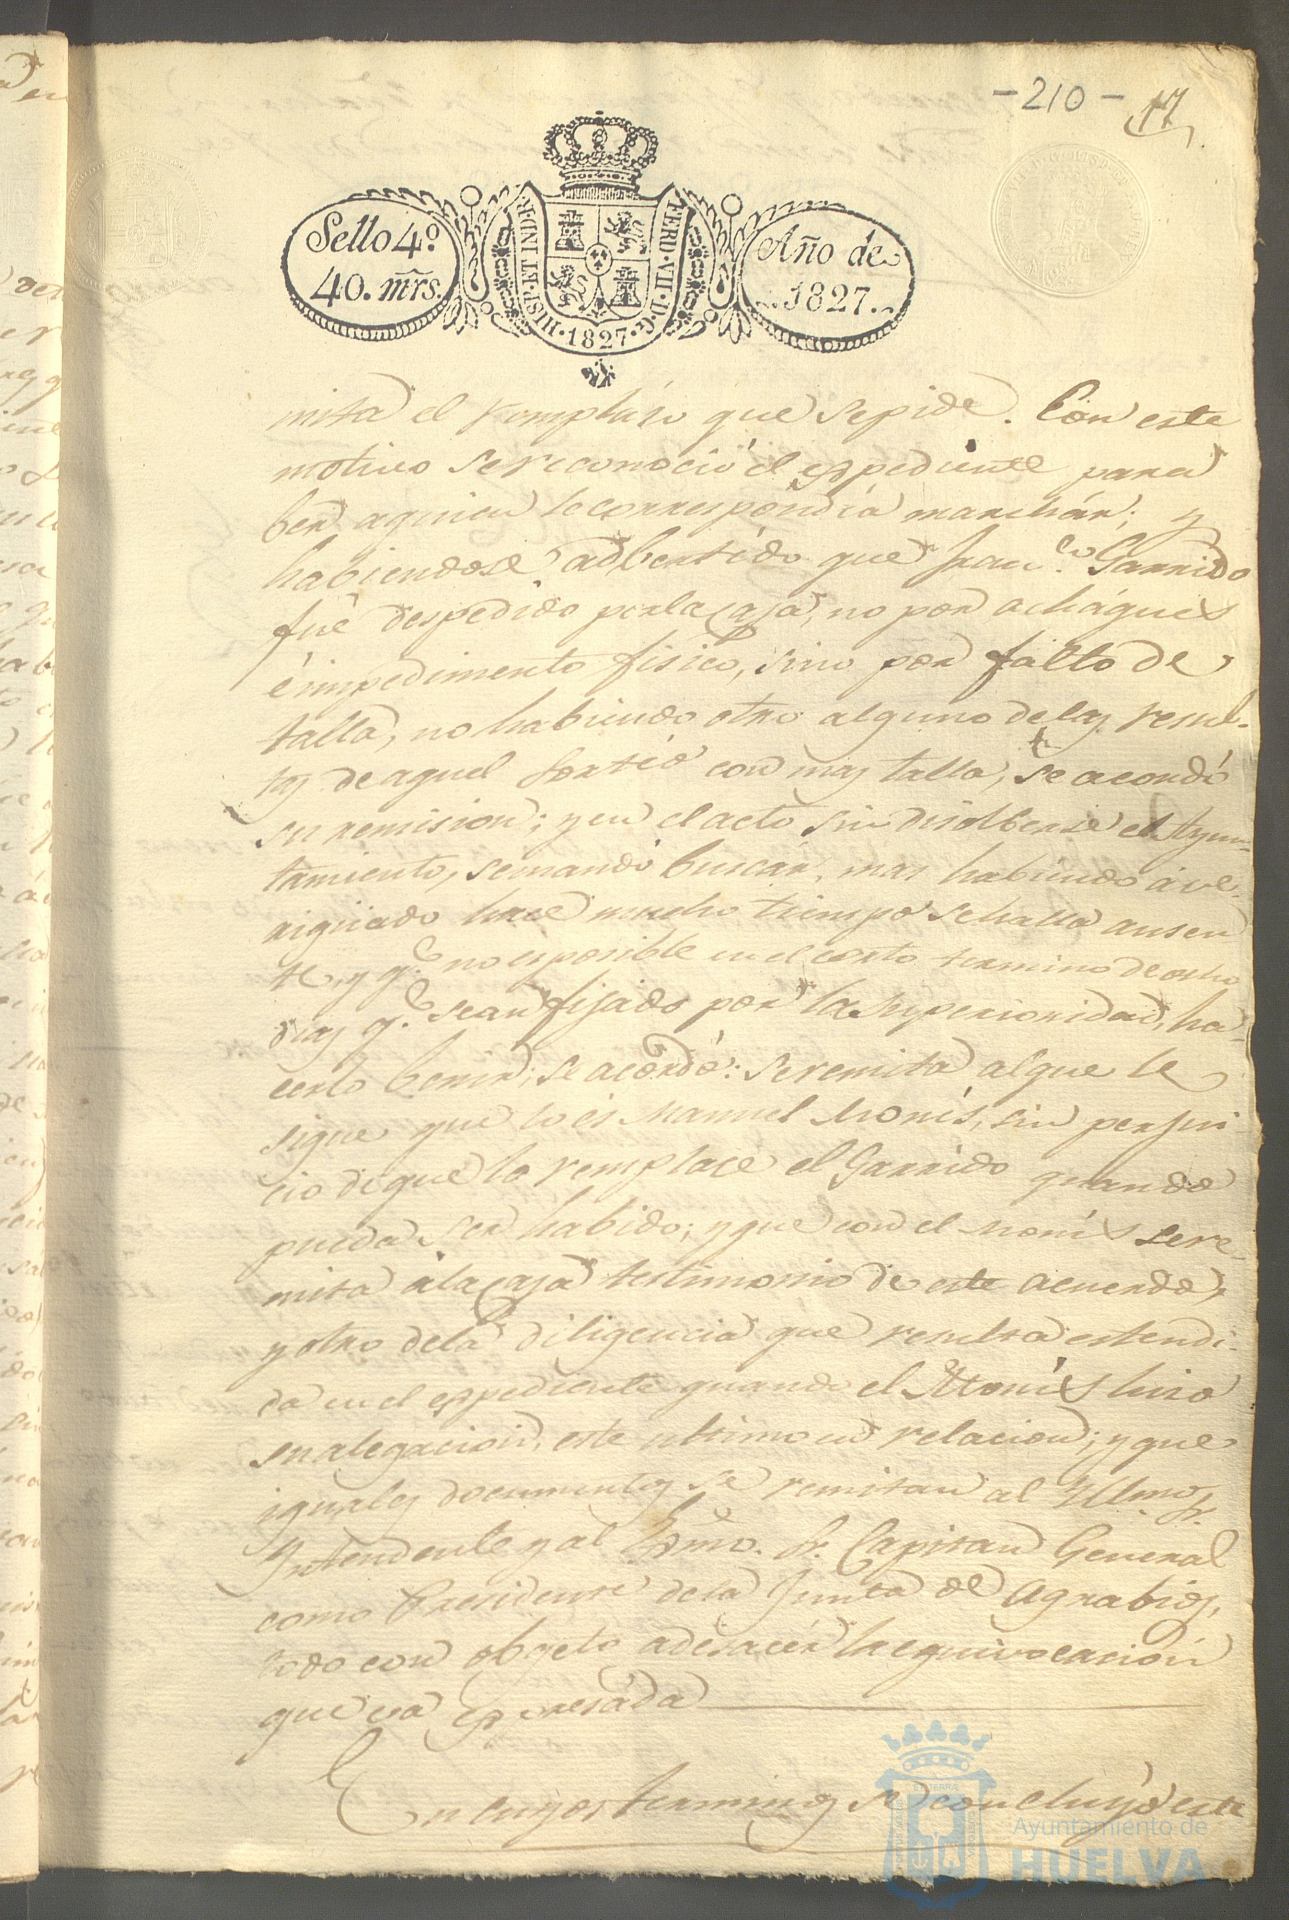 -210- 17
Sello 4º
40. mrs.
HISP. ET IND. R. FERD. VII. D. G.
1827
Año de
1827.
mita el remplázo que se pide. Con este
motivo se reconoció el espediente para
ber aquien le correspondía marchár; y
habiendose adbertido que Fran.co Garrido
fué despedido por la Caja, no por acháques
é impedimento fisico, sino por falto de
talla, no habiendo otro alguno de las resul-
tas de aquel sortéo con mas talla, se acordó
su remision; y en el acto sin disolberse el Ayun-
tamiento, se mandó buscár, mas habiendo ave-
rigüado hace mucho tiempo se halla ausen
te, y q.e no es posible en el corto termino de ocho
dias q.e sean fijado por la Superioridad, ha-
cerlo benir; se acordó: se remita al que le
sigue que lo és Manuel Monís, sin perjui
cio de que lo remplace el Garrido quando
pueda ser habido; y que con el Monís se re-
mita a la Caja testimonio de este acuerdo,
y otro de la diligencia que resulta estendi-
da en el espediente quando el Monís hizo
su alegacion, este ultimo en relacion; y que
iguales documentos se remitan al Yllmo. Sr.
Yntendente y al Esmo. Sr. Capitan General
como Presidente de la Junta de Agrabios,
todo con objeto a desacér la equivocación
que va espresáda
En cuyos terminos se concluyó este
Ayuntamiento de
HUELVA